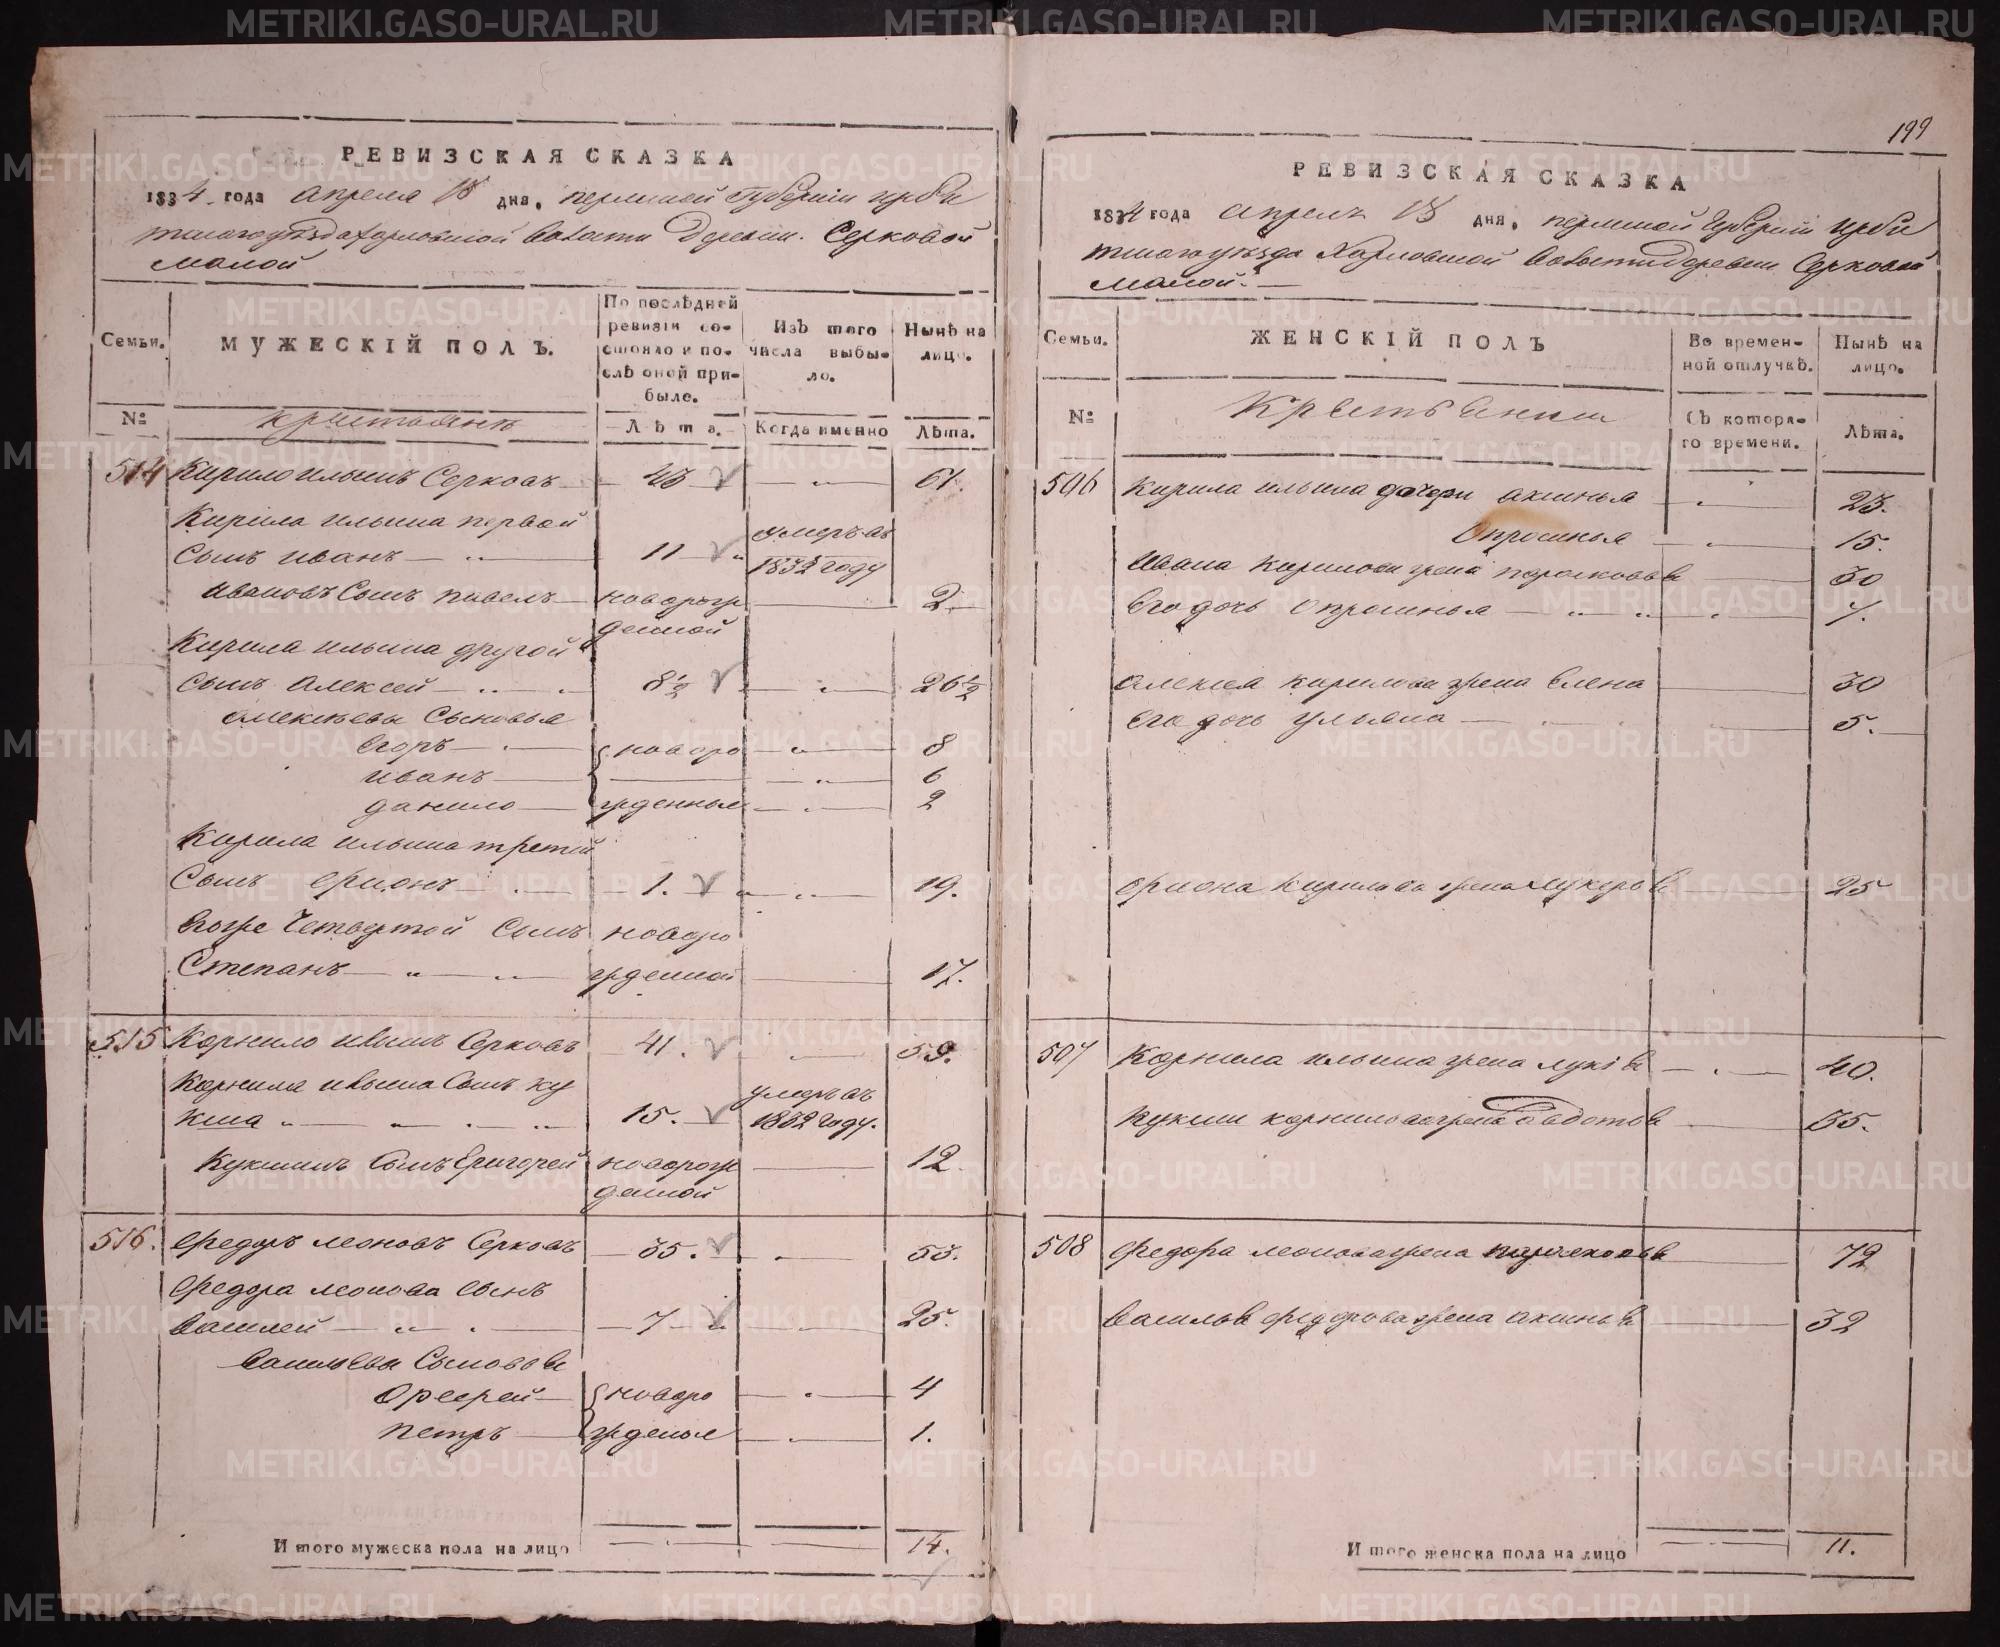 199
РЕВИЗСКАЯ СКАЗКА
1834 года апреля 18 дня, пермской Губернiи ирби
тскагоуѣзда харловской Волости Деревни. Серковой
малой
Семьи.
МУЖЕСКІЙ ПОЛЪ.
По послѣдней ревизіи состояло и послѣ оной прибыло.
Изъ того числа выбыло.
Нынѣ на лицо.
№
крестьянъ
Лѣта.
Когда именно
Лѣта.
514 Кирило ильинъ Серковъ 43 61.
Кирила ильина первой
сынъ иванъ 11 умеръ въ 1832 году
ивановъ Сынъ павелъ новорожденной 2.
Кирила ильина другой
сынъ алексей 8½ 26½
алексѣевы Сыновья
Егоръ новоро 8
иванъ 6
данило жденныя 2
Кирила ильина третей
Сынъ ѳрионъ 1. 19.
Егоже Четвертой Сынъ новоро
Степанъ жденной 17.
515 Корнило ильинъ Серковъ 41. 59.
Корнила ильина Сынъ ку
кша 15. умеръ въ 1832 году.
Кукшинъ Сынъ Григорей новорожденной 12
516. Федоръ леоновъ Серковъ 35. 53.
Федора леонова сынъ
Василей 7 25.
Васильевы Сыновья
новоро 4
петръ жденыя 1.
Итого мужеска пола на лицо 14.
РЕВИЗСКАЯ СКАЗКА
1834 года апреля 18 дня, пермской Губернiи ирби
тскагоуѣзда Харловской Волости Деревни Серковой
малой.
Семьи.
ЖЕНСКІЙ ПОЛЪ
Во временной отлучкѣ.
Нынѣ на лицо.
№
Крестьянки
Съ котораго времени.
Лѣта.
506 Кирила ильина дочери аксинья 23.
Опросинья 15.
Ивана кирилова жена парасковья 30
Его дочь опросинья 7.
алексея кирилова жена Елена 30
Его дочь ульяна 5.
ѳриона кирилова жена лукерья 25
507 Корнила ильина жена лукiя 40.
кукши корнилова жена овдотья 35.
508 Федора леонова жена парасковья 72
Василья федорова жена аксинья 32
Итого женска пола на лицо 11.
METRIKI.GASO-URAL.RU